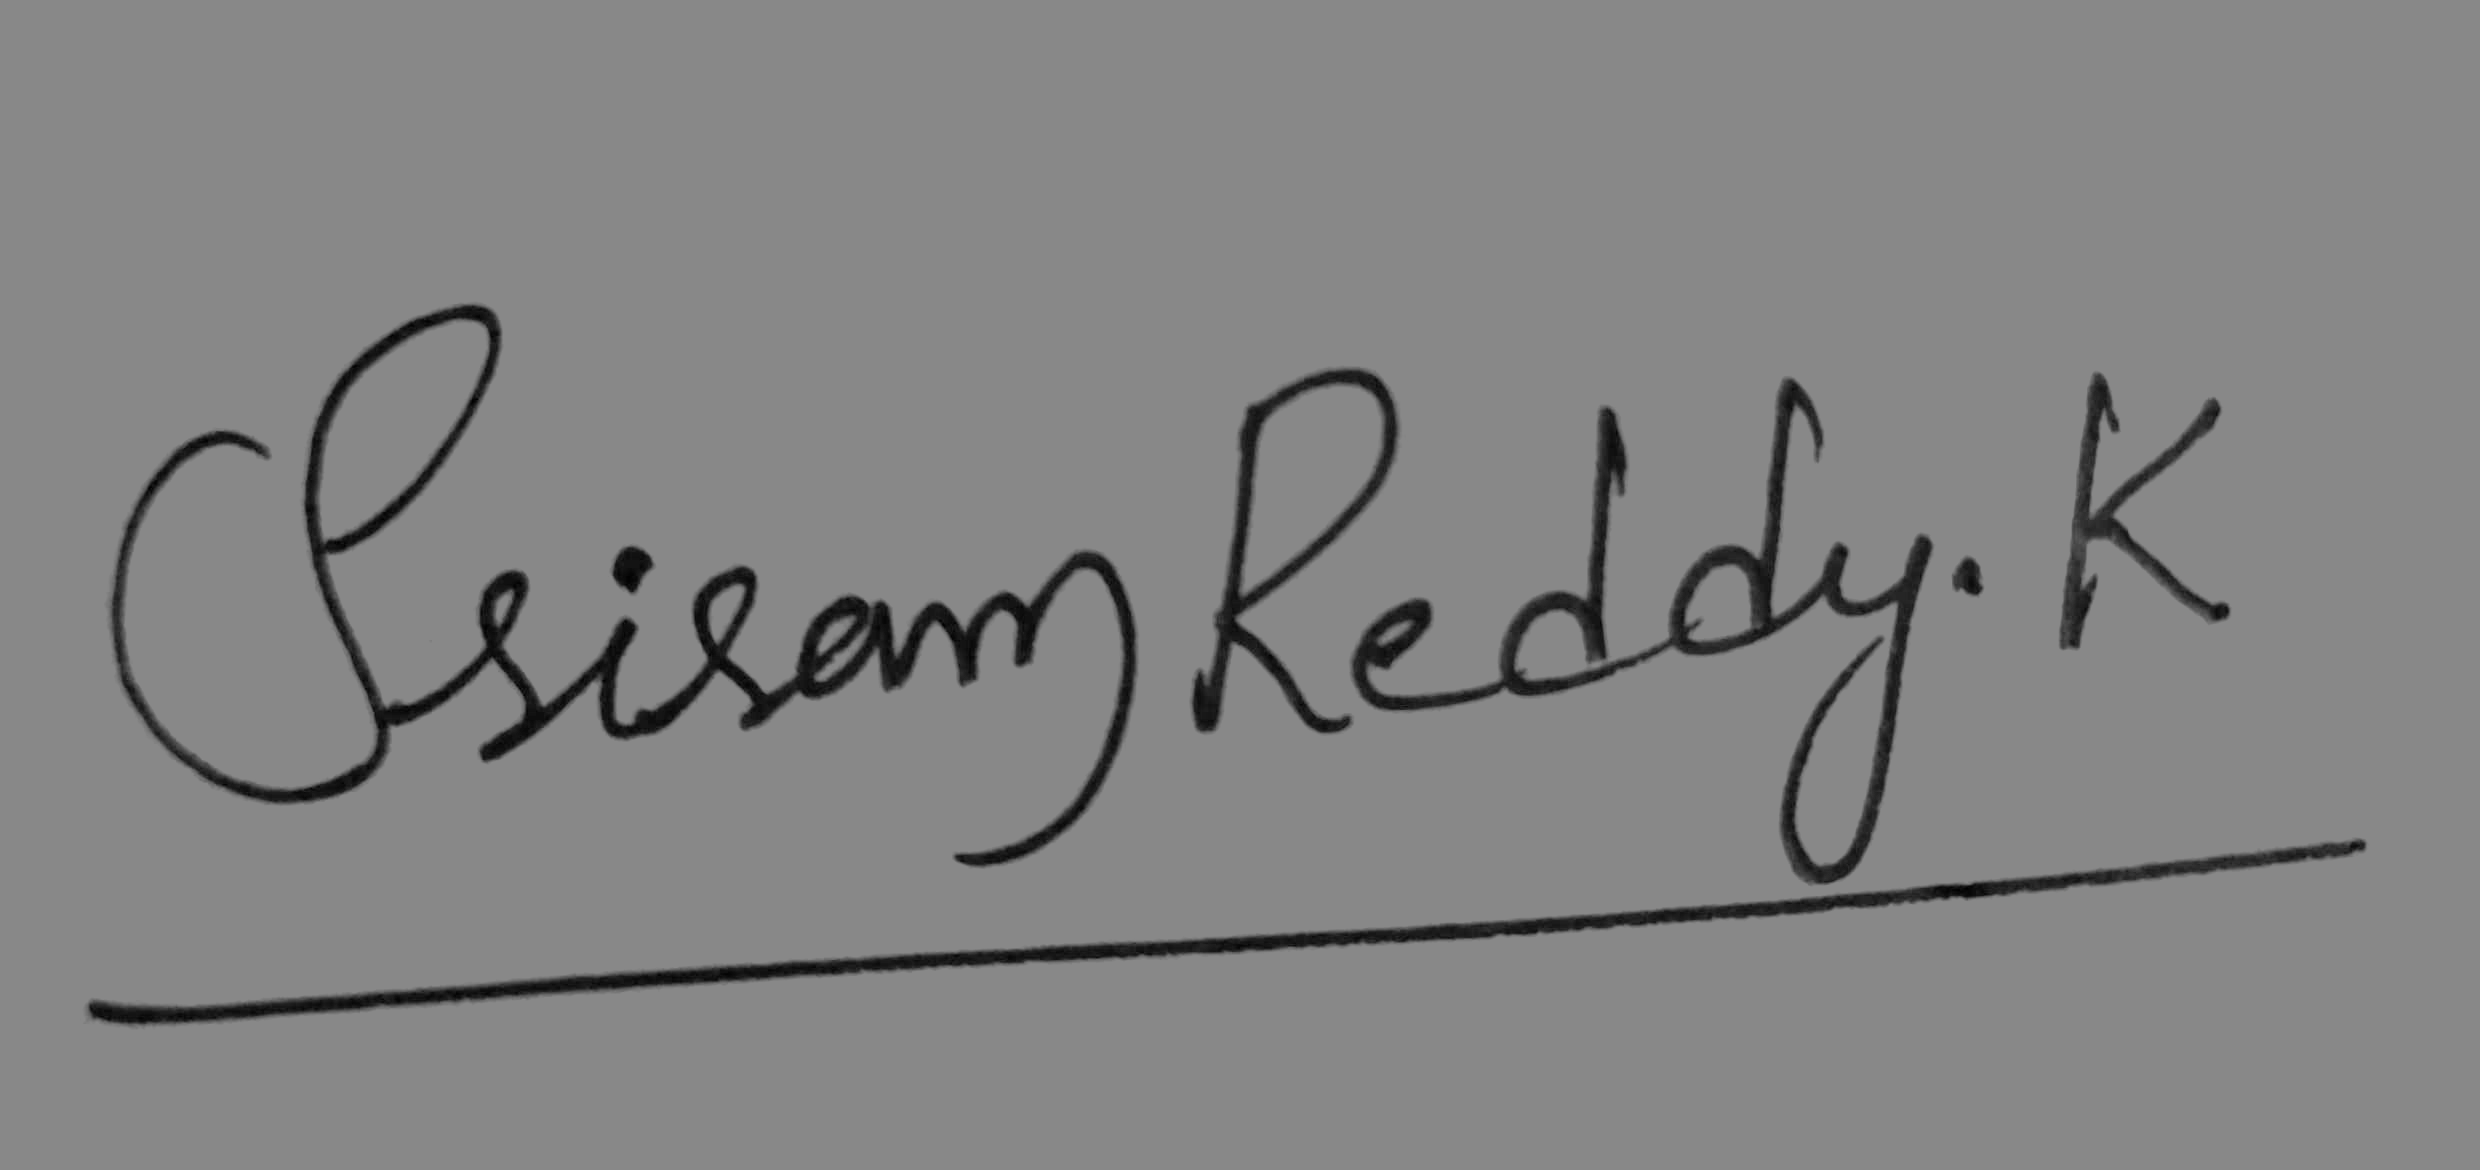 Sriram Reddy. K